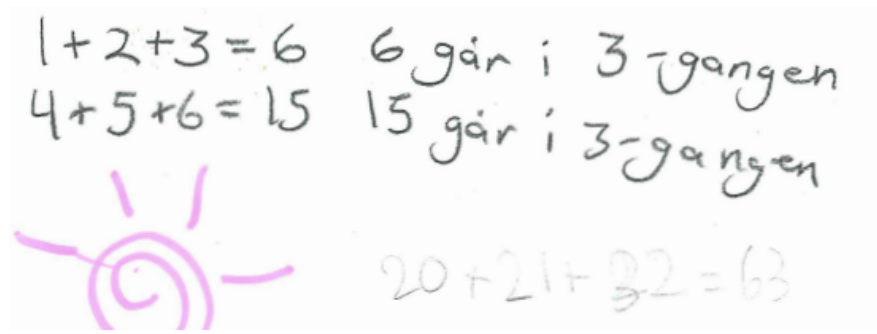 1+2+3=6 6 går i 3-gangen
4+5+6=15 15 går i 3-gangen
20+21+22=63